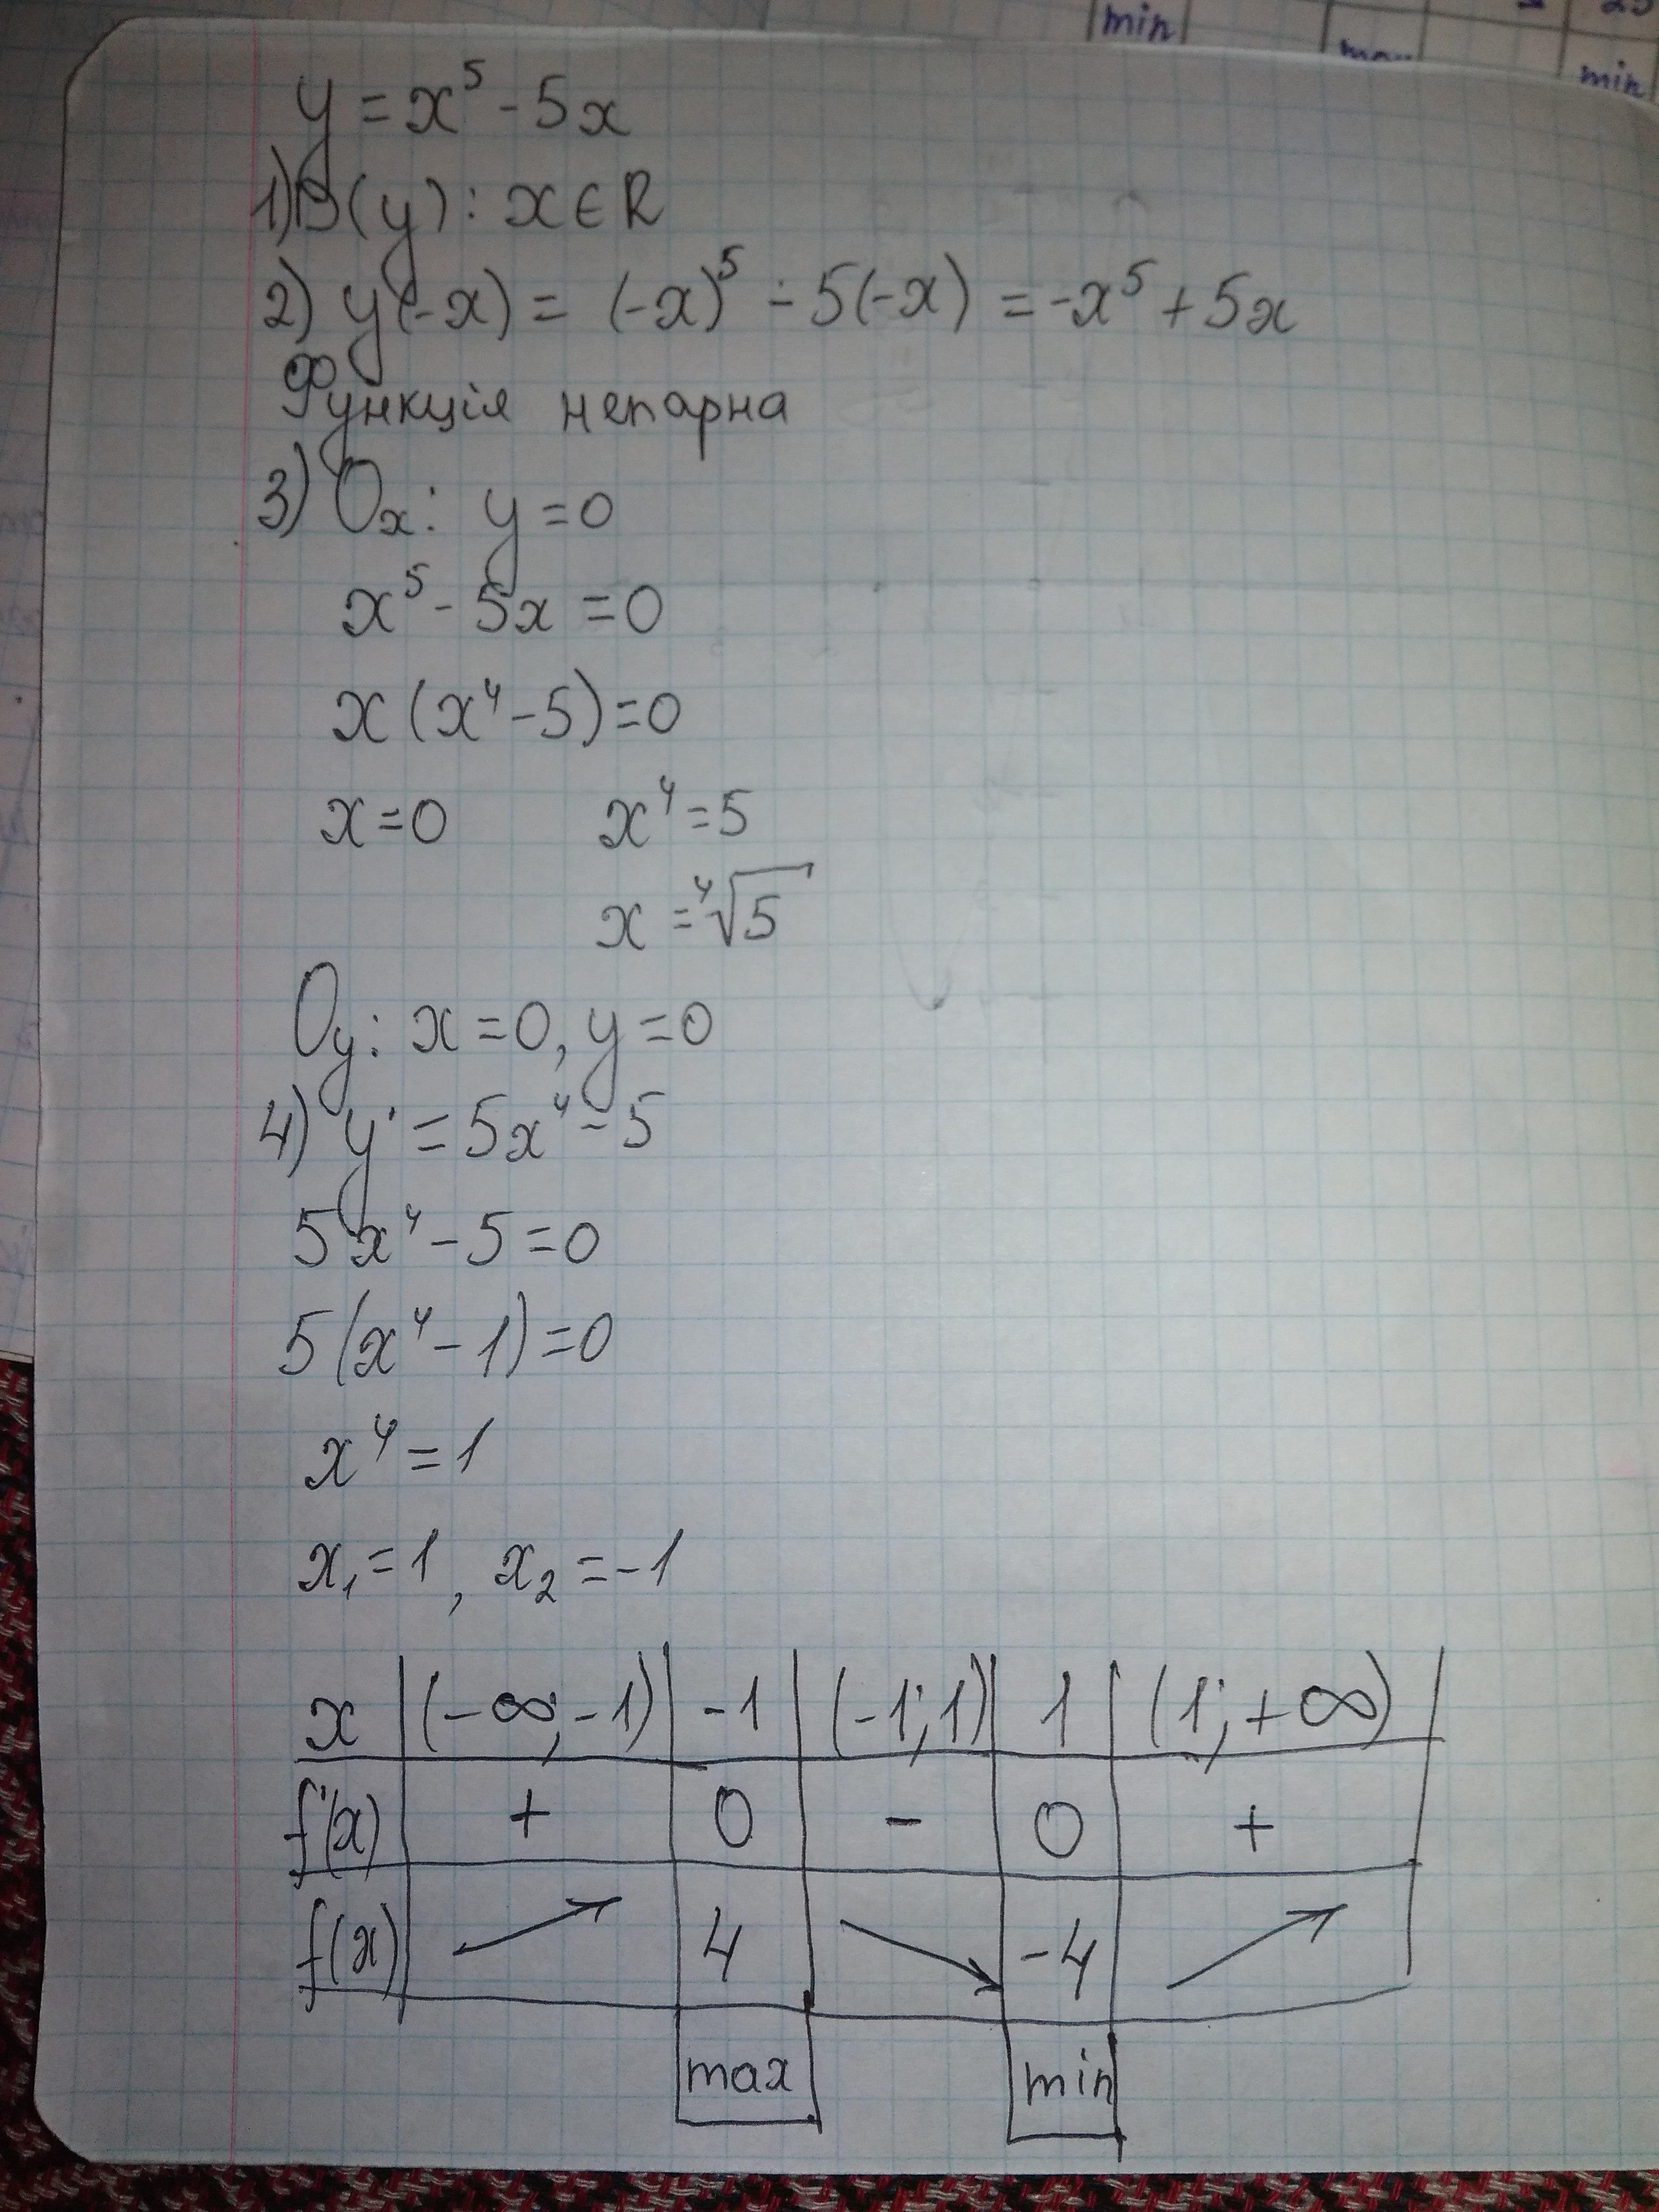 min
min
y = x⁵ - 5x
1) D(y): x ∈ R
2) y(-x) = (-x)⁵ - 5(-x) = -x⁵ + 5x
Функція непарна
3) Ox: y = 0
x⁵ - 5x = 0
x(x⁴ - 5) = 0
x = 0 x⁴ = 5
x = ⁴√5
Oy: x = 0, y = 0
4) y' = 5x⁴ - 5
5x⁴ - 5 = 0
5(x⁴ - 1) = 0
x⁴ = 1
x₁ = 1, x₂ = -1
x (-∞; -1) -1 (-1; 1) 1 (1; +∞)
f'(x) + 0 - 0 +
f(x) ↗ 4 ↘ -4 ↗
max min